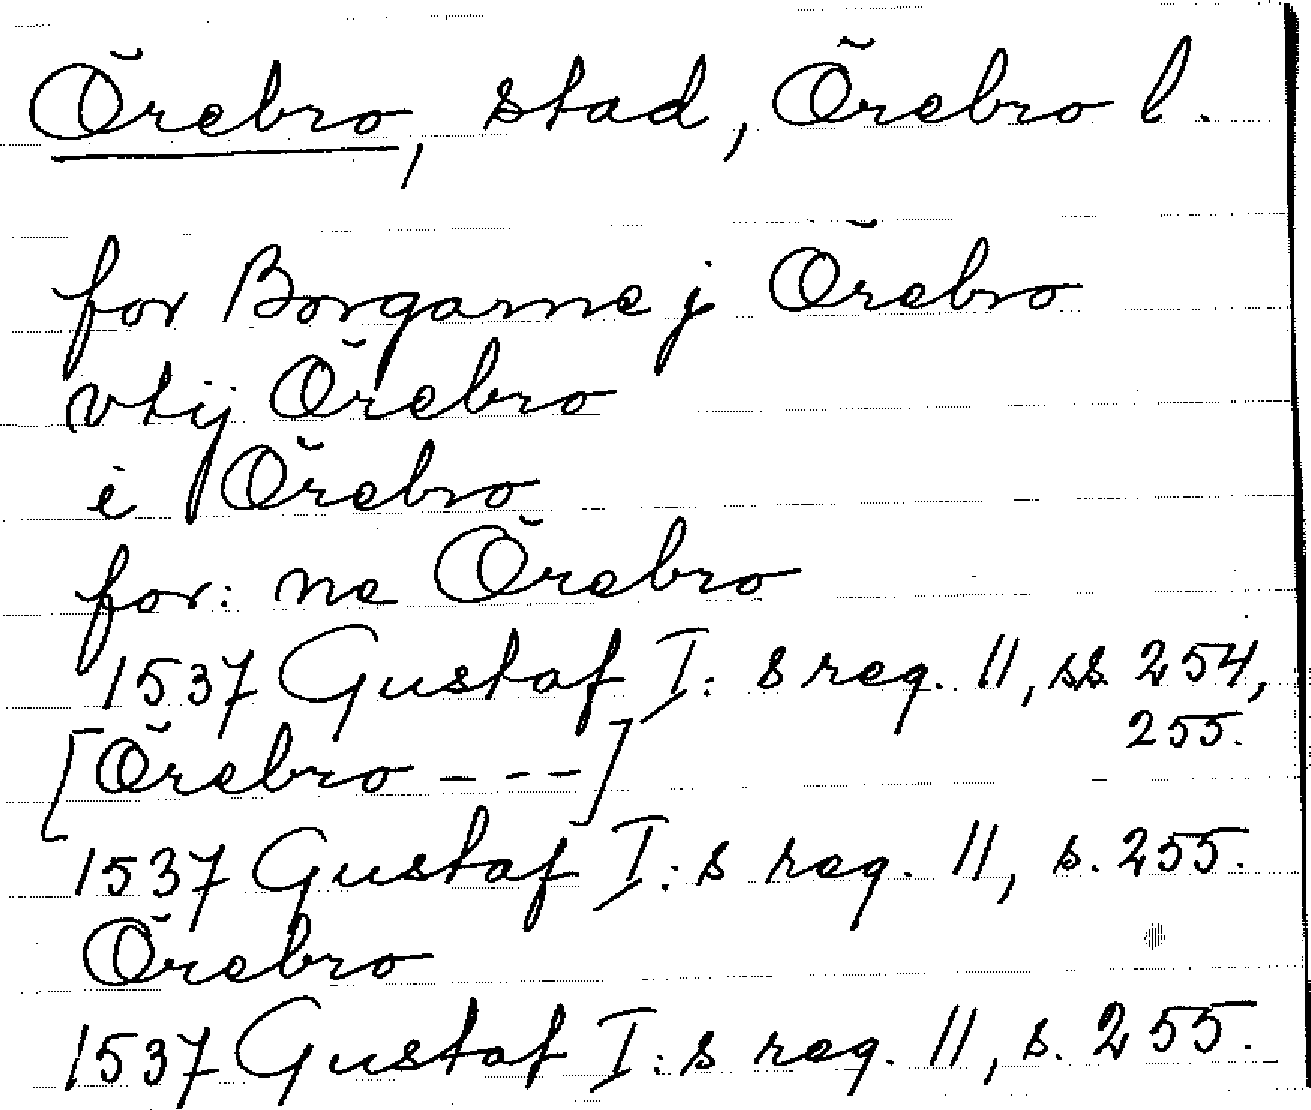 Örebro, stad, Örebro l.
for Borgarne j Örebro
vtij Örebro
i Örebro
for: ne Örebro
1537 Gustaf I:s reg. 11, ss 254,
255.
[Örebro - - - -]
1537 Gustaf I:s reg. 11, s. 255.
Örebro
1537 Gustaf I:s reg. 11, s. 255.